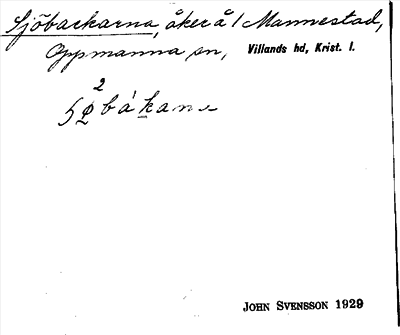 Sjöbackarna, åker å 1 Mannestad,
Oppmanna sn, Villands hd, Krist. l.
2
JOHN SVENSSON 1929